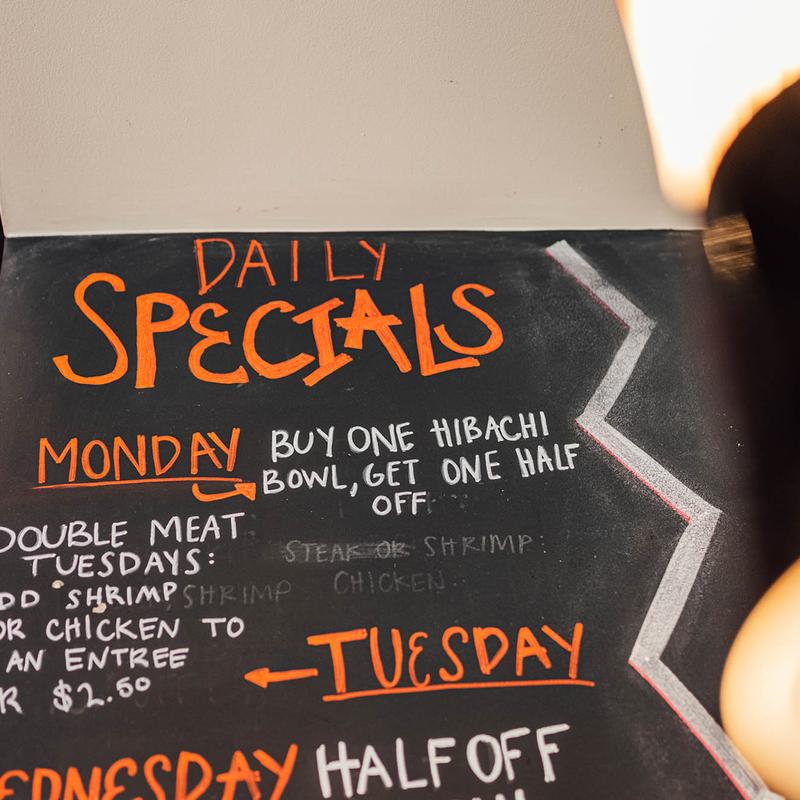 DAILY
SPECIALS
MONDAY
BUY ONE HIBACHI
BOWL, GET ONE HALF
OFF
STEAK OR SHRIMP:
SHRIMP CHICKEN
TUESDAY
DOUBLE MEAT
TUESDAYS:
DD SHRIMP
OR CHICKEN TO
AN ENTREE
R $2.50
EDNESDAY
HALF OFF